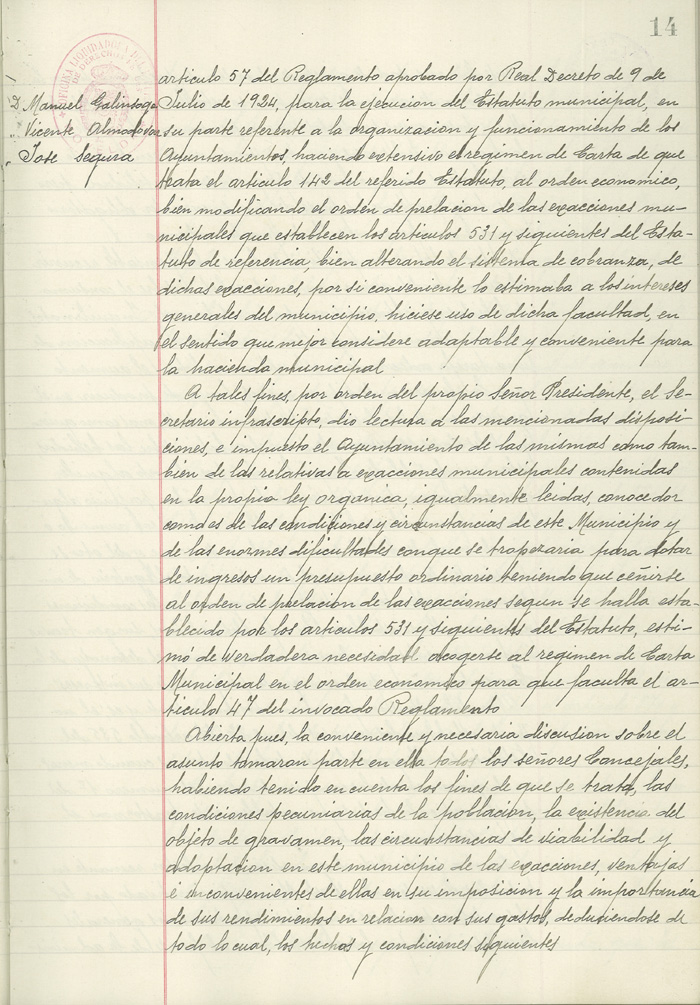 14
D. Manuel Galinsoga
" Vicente Almodovar
" Jose Segura
articulo 57 del Reglamento aprobado por Real Decreto de 9 de
Julio de 1924, para la ejecucion del Estatuto municipal, en
su parte referente a la organizacion y funcionamiento de los
Ayuntamientos, haciendo extensivo el regimen de Carta de que
trata el articulo 142 del referido Estatuto, al orden economico,
bien modificando el orden de prelacion de las exacciones mu-
nicipales que establecen los articulos 531 y siguientes del Esta-
tuto de referencia, bien alterando el sistema de cobranza, de
dichas exacciones, por si conveniente lo estimaba a los intereses
generales del municipio, hiciese uso de dicha facultad, en
el sentido que mejor considere adaptable y conveniente para
la hacienda municipal
A tales fines, por orden del propio Señor Presidente, el Se-
cretario infrascripto, dio lectura a las mencionadas disposi-
ciones, e impuesto el Ayuntamiento de las mismas como tam-
bien de las relativas a exacciones municipales contenidas
en la propia ley organica, igualmente leidas, conocedor
como es de las condiciones y circunstancias de este Municipio y
de las enormes dificultades conque se tropezaria para dotar
de ingresos un presupuesto ordinario teniendo que ceñirse
al orden de prelacion de las exacciones segun se halla esta-
blecido por los articulos 531 y siguientes del Estatuto, esti-
mó de verdadera necesidad acogerse al regimen de Carta
Municipal en el orden economico para que faculta el ar-
ticulo 47 del invocado Reglamento
Abierta pues, la conveniente y necesaria discusion sobre el
asunto tomaron parte en ella todos los señores Concejales,
habiendo tenido en cuenta los fines de que se trata, las
condiciones pecuniarias de la poblacion, la existencia del
objeto de gravamen, las circunstancias de viabilidad y
adaptacion en este municipio de las exacciones, ventajas
é inconvenientes de ellas en su imposicion y la importancia
de sus rendimientos en relacion con sus gastos, deduciendose de
todo lo cual, los hechos y condiciones siguientes